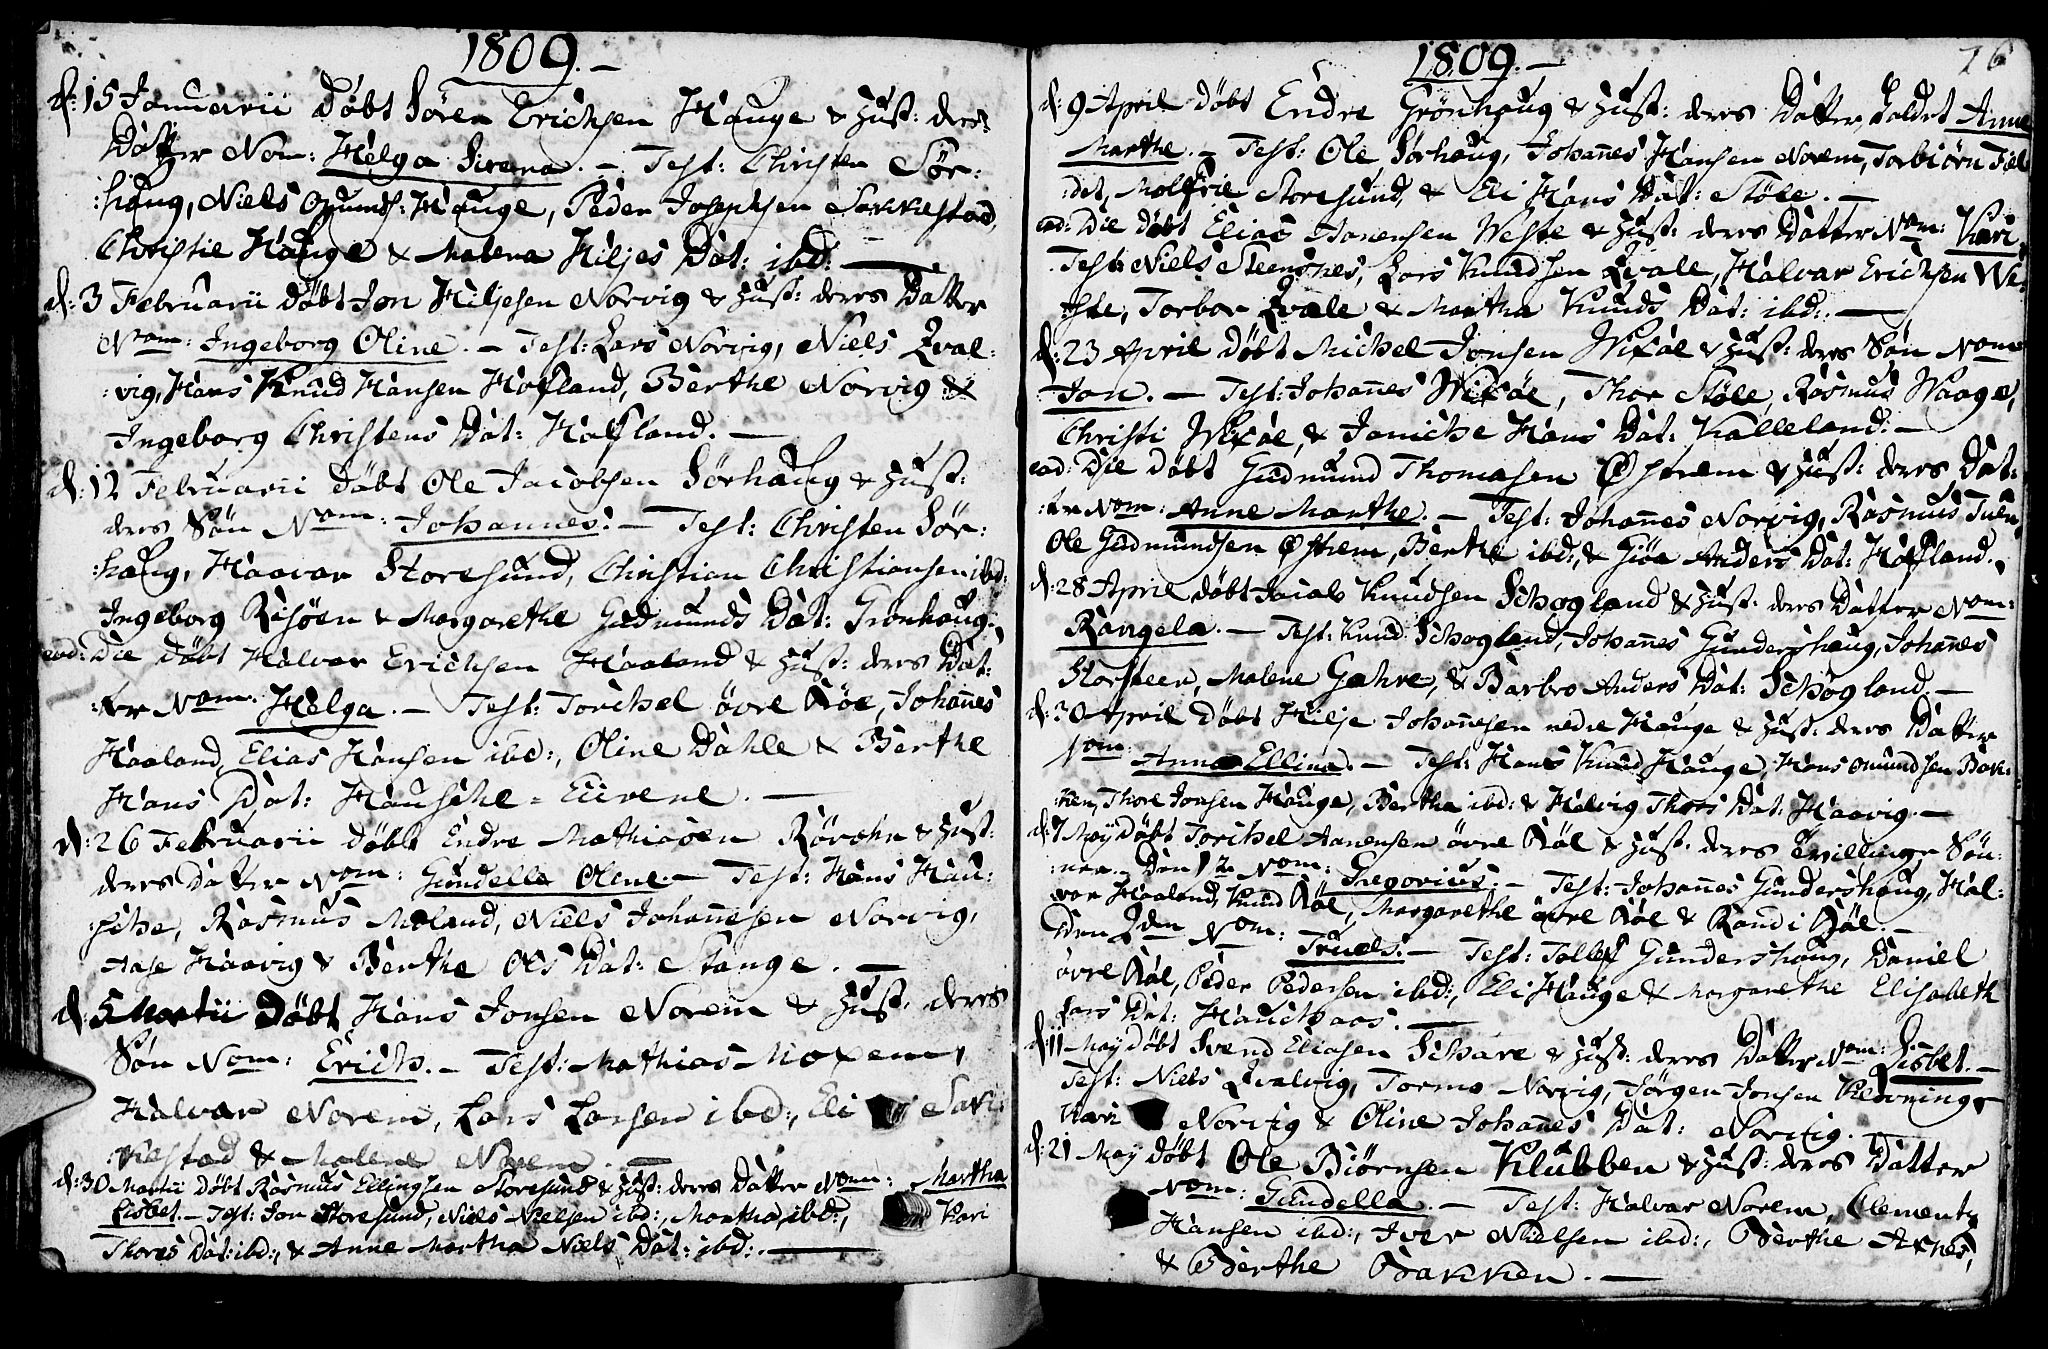 1809.—
d: 15 Januarii Døbt Sören Erichsen Hauge & Hust: deres
Datter Nom: Helga Serena. — Test: Christen Sør:
:haug, Niels Omunds: Hauge, Peder Josephsen Sakkestad,
Christie Hauge & Malena Hiljes Dat: ibd: —
d: 3 Februarii Døbt Jon Hiljesen Norvig & Hust: deres Datter
Nom: Ingeborg Oline. — Test: Lars Norvig, Niels Qval:
:vig, Hans Knud Hansen Hofland, Berthe Norvig &
Ingeborg Christens Dat: Hafland. —
d: 12 Februarii Døbt Ole Jacobsen Sørhaug & Hust:
deres Søn Nom: Johannes. — Test: Christen Sør:
:haug, Haavar Storesund, Christian Christiansen ibd:
Ingeborg Risøen & Margarethe Gudmunds Dat: Grønhaug.
eod: Die Døbt Halvar Erichsen Haaland & Hust: deres Dat:
:ter Nom: Helga. — Test: Torichel øvre Røe, Johanes
Haaland, Elias Hansen ibd:, Oline Dahle & Berthe
Hans Dat: Hausche = Eivene. —
d: 26 Februarii Døbt Endre Mathiasen Røvehr & Hust:
deres Datter Nom: Gundella Olene. — Test: Hans Hau:
:sche, Rasmus Moland, Niels Johanesen Norvig,
Aase Haavig & Berthe Ols Dat: Stange. —
d: 5 Martii Døbt Hans Jonsen Norem & Hust: deres
Søn Nom: Erich. — Test: Mathias Moxem,
Halvar Norem, Lars Larsen ibd:, Eli Sak:
:kestad & Malene Norem. —
d: 30 Martii Døbt Rasmus Ellingsen Storesund & Hust: deres Datter Nom: Martha
Lisbet. — Test: Jon Storesund, Niels Nielsen ibd:, Martha ibd:, Kari
Thores Dat: ibd:, & Anne Martha Niels Dat: ibd: —
1809.—
76
d: 9 April Døbt Endre Grønhaug & Hust: deres Datter, kaldet Anne
Marthe. — Test: Ole Sørhaug, Johanes Hansen Norem, Torbiørn Fiel
:det, Molfrie Storesund, & Eli Hans Dat: Støle. —
eod: Die Døbt Elias Aanensen Weste & Hust: deres Datter Nom: Kari.
Test: Niels Steensnes, Lars Knudsen Qvale, Halvar Erichsen We:
:ste, Torbor Qvale & Martha Knuds Dat: ibd: —
d: 23 April Døbt Michel Jonsen Wixøe & Hust: deres Søn Nom
Jon. — Test: Johanes Wixøe, Thor Støle, Rasmus Waage,
Christi Wixøe, & Joniche Hans Dat: Kalleland: —
eod: Die Døbt Gudmund Thomasen Østrem & Hust: deres Dat:
:ter Nom: Anne Marthe. — Test: Johanes Norvig, Rasmus Tuen,
Ole Gudmundsen Østrem, Berthe ibd:, & Giøa Anders Dat: Hafland.
d: 28 April Døbt Jacob Knudsen Schogland & Hust: deres Datter Nom:
Rangela. — Test: Knud Schogland, Johanes Gundershaug, Johanes
Storsteen, Malene Gahre, & Barbro Anders Dat: Schogland. —
d: 30 April Døbt Hilje Johanesen nedre Hauge & Hust: deres Datter
Nom: Anna Ellina. — Test: Hans Knud Hauge, Hans Omundsen Bak:
:ken, Thore Jonsen Hauge, Berthe ibd: & Helvig Thors Dat: Haavig. —
d: 7 May Døbt Torichel Aanensen øvre Røe & Hust: deres Tvillinge Søn:
:ner. Den 1te Nom: Gregorius. — Test: Johanes Gundershaug, Hal:
:var Haaland, Knud Røe, Margarethe øvre Røe & Randi Røe. —
Den 2den Nom: Truels. — Test: Tollef Gundershaug, Daniel
øvre Røe, Peder Pedersen ibd:, Eli Hauge & Margarethe Elisabeth
Lars Dat: Hauchaas. —
d: 11 May Døbt Svend Eliasen Schare & Hust: deres Datter Nom: Lisbet. —
Test: Niels Qvalvig, Tormo Norvig, Jørgen Jonsen Kløvning,
Kari Norvig & Oline Johanes Dat: Norvig. —
d: 21 May Døbt Ole Biørnsen Klubben & Hust: deres Datter
Nom: Gundella. — Test: Halvar Norem, Clement
Hansen ibd:, Iver Nielsen ibd:, Berthe Axnes,
& Berthe Bakken. —